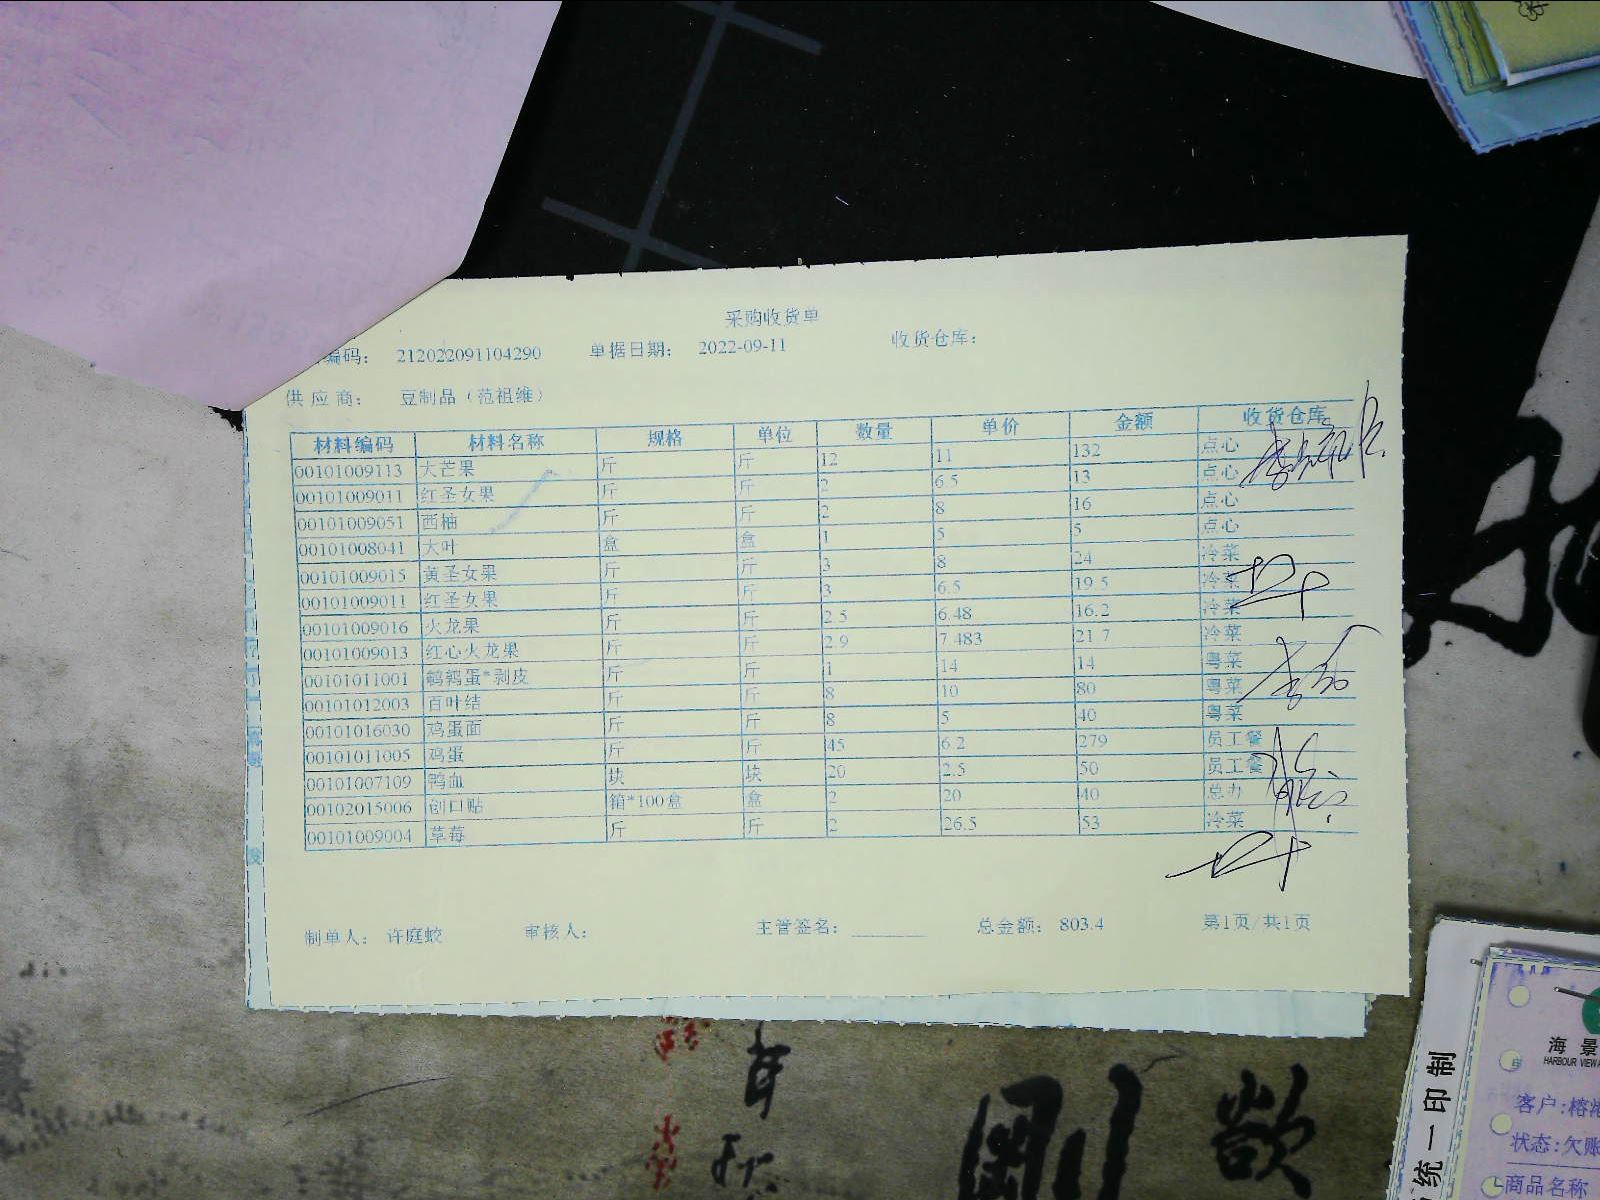 采购收货单
编码： 212022091104290 单据日期： 2022-09-11 收货仓库：
供应商： 豆制品（范祖维）
材料编码 材料名称 规格 单位 数量 单价 金额 收货仓库
00101009113 大芒果 斤 斤 12 11 132 点心
00101009011 红圣女果 斤 斤 2 6.5 13 点心
00101009051 西柚 斤 斤 2 8 16 点心
00101008041 大叶 盒 盒 1 5 5 点心
00101009015 黄圣女果 斤 斤 3 8 24 冷菜
00101009011 红圣女果 斤 斤 3 6.5 19.5 冷菜
00101009016 火龙果 斤 斤 2.5 6.48 16.2 冷菜
00101009013 红心火龙果 斤 斤 2.9 7.483 21.7 冷菜
00101011001 鹌鹑蛋*剥皮 斤 斤 1 14 14 粤菜
00101012003 百叶结 斤 斤 8 10 80 粤菜
00101016030 鸡蛋面 斤 斤 8 5 40 粤菜
00101011005 鸡蛋 斤 斤 45 6.2 279 员工餐
00101007109 鸭血 块 块 20 2.5 50 员工餐
00102015006 创口贴 箱*100盒 盒 2 20 40 总办
00101009004 草莓 斤 斤 2 26.5 53 冷菜
制单人： 许庭蛟 审核人： 主管签名： 总金额： 803.4 第1页/共1页
统一印制
海景
HARBOUR VIEW
客户：榕
状态：欠账
商品名称
剛
欲